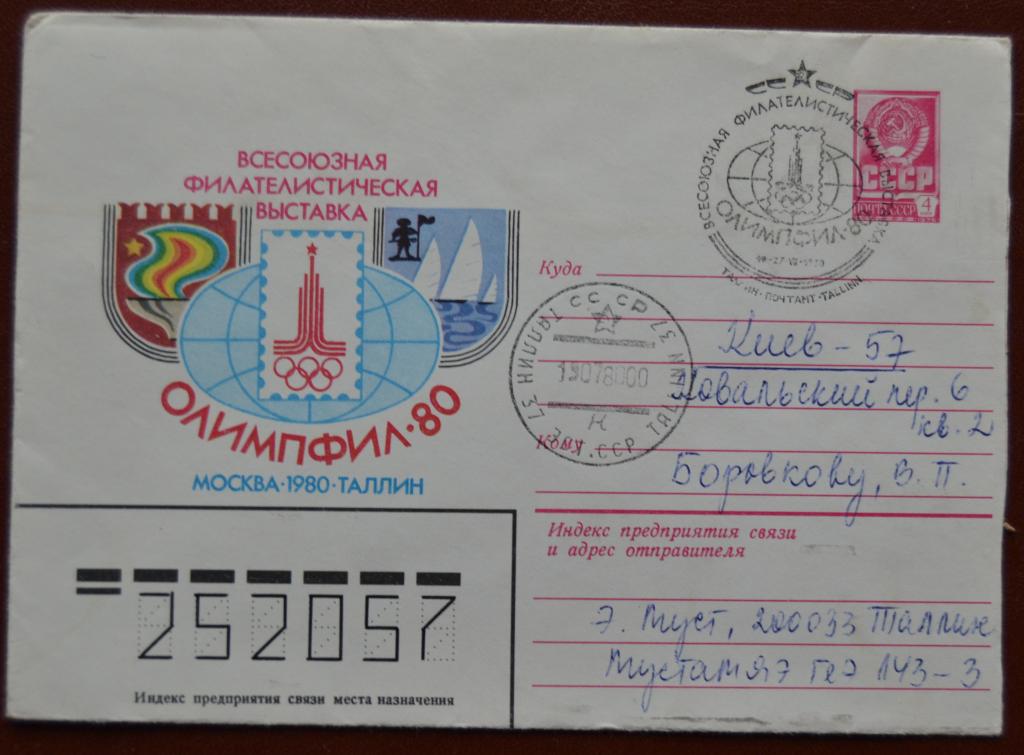 ВСЕСОЮЗНАЯ
ФИЛАТЕЛИСТИЧЕСКАЯ
ВЫСТАВКА
ОЛИМПФИЛ·80
МОСКВА·1980·ТАЛЛИН
СССР
ВСЕСОЮЗНАЯ ФИЛАТЕЛИСТИЧЕСКАЯ ВЫСТАВКА
ОЛИМПФИЛ·80
ТАЛЛИН·ПОЧТАМТ·TALLINN
СССР
ПОЧТА СССР
4
Куда
Киев - 57
Ковальский пер. 6
кв. 2
Кому
Боровкову, В. П.
СССР
ТАЛЛИН 37
37 TALLINN
190780000
Н
ЭСТ.ССР
Индекс предприятия связи
и адрес отправителя
Э. Муст, 200033 Таллин
Мустамяэ теэ 143-3
252057
Индекс предприятия связи места назначения